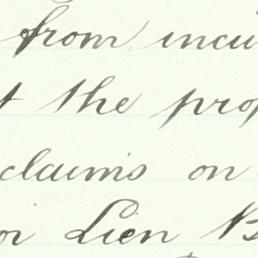 from incu
t the prop
claims on
or Lien B